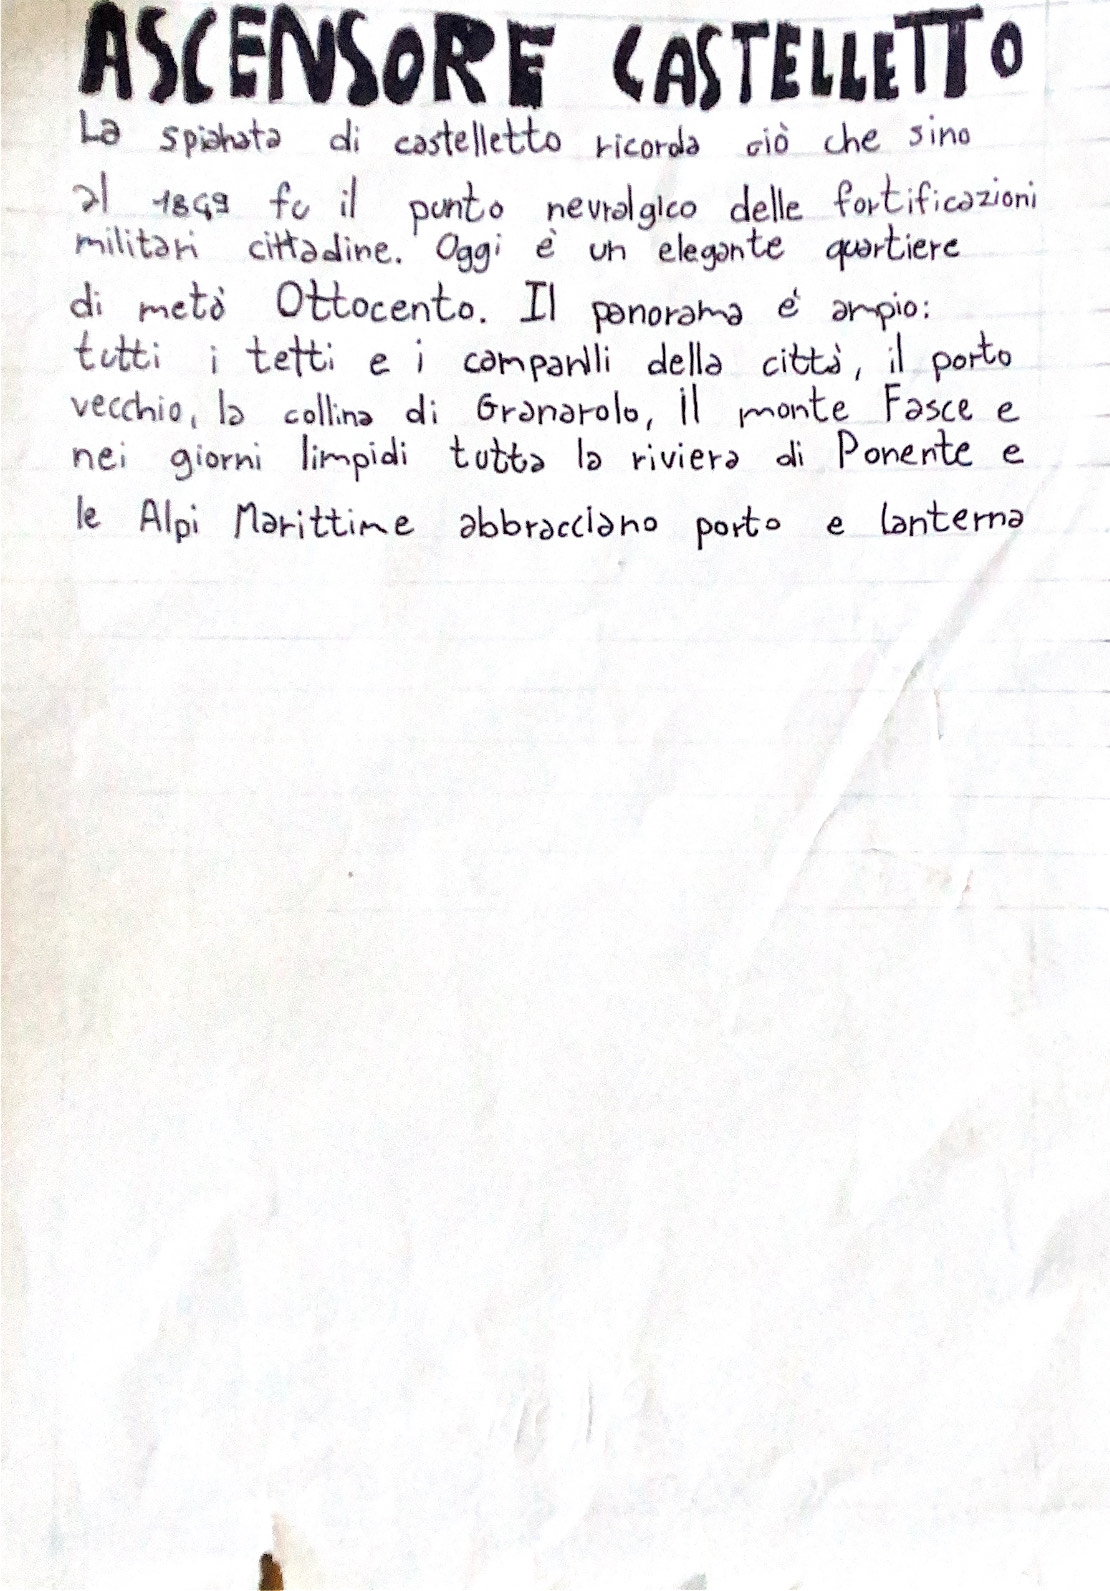 ASCENSORE CASTELLETTO
La spianata di castelletto ricorda ciò che sino
al 1849 fu il punto nevralgico delle fortificazioni
militari cittadine. Oggi è un elegante quartiere
di metà Ottocento. Il panorama é ampio:
tutti i tetti e i campanili della città, il porto
vecchio, la collina di Granarolo, il monte Fasce e
nei giorni limpidi tutta la riviera di Ponente e
le Alpi Marittime abbracciano porto e lanterna